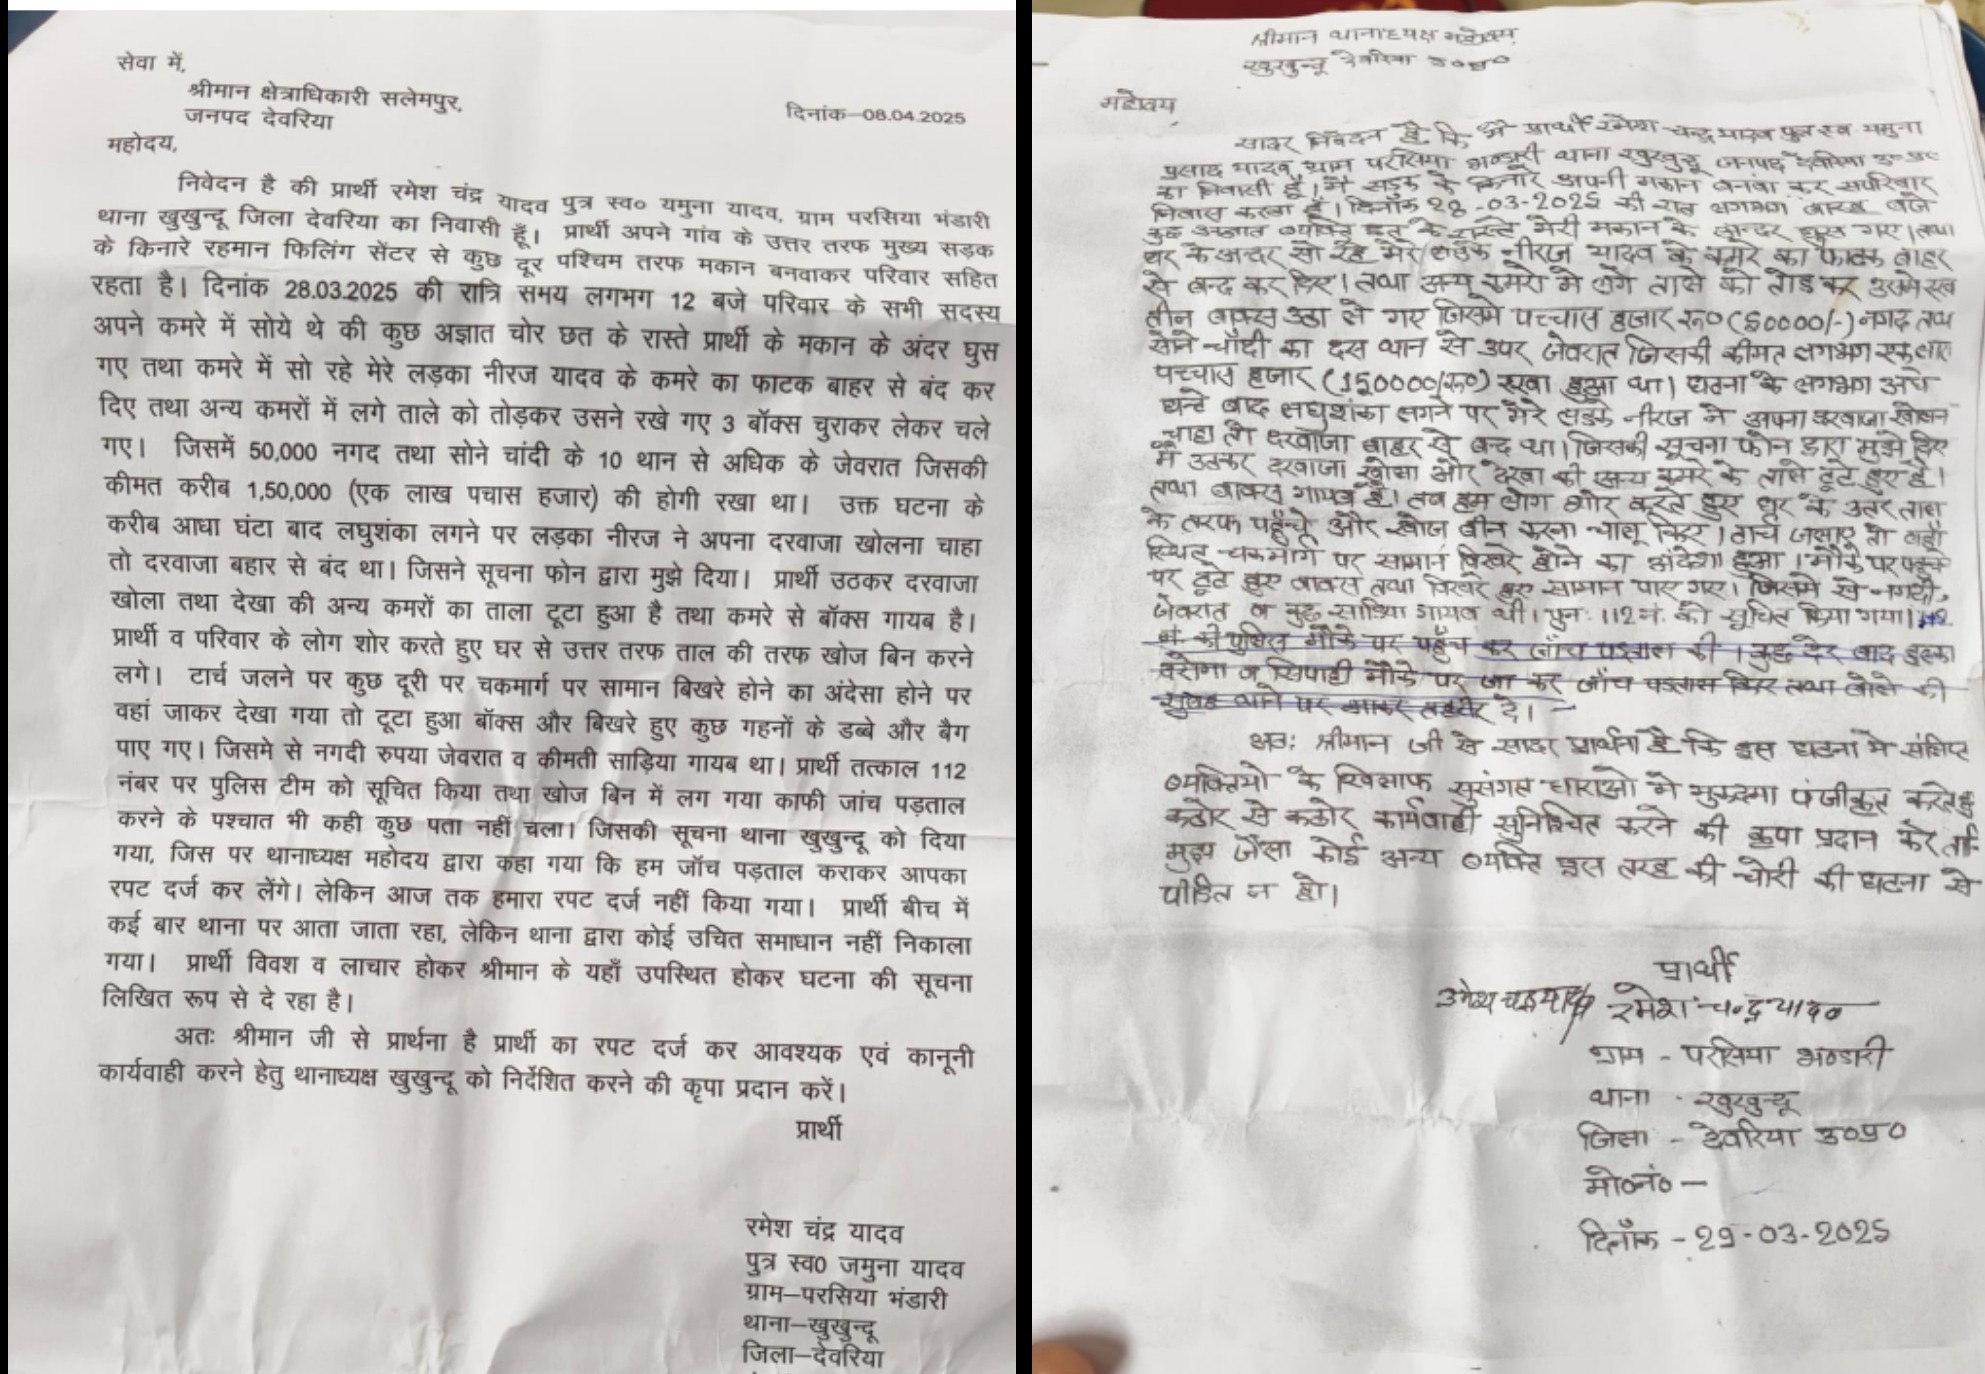 सेवा में,
श्रीमान क्षेत्राधिकारी सलेमपुर,
जनपद देवरिया
दिनांक–08.04.2025
महोदय,
निवेदन है की प्रार्थी रमेश चंद्र यादव पुत्र स्व० यमुना यादव, ग्राम परसिया भंडारी
थाना खुखुन्दू जिला देवरिया का निवासी हूँ। प्रार्थी अपने गांव के उत्तर तरफ मुख्य सड़क
के किनारे रहमान फिलिंग सेंटर से कुछ दूर पश्चिम तरफ मकान बनवाकर परिवार सहित
रहता है। दिनांक 28.03.2025 की रात्रि समय लगभग 12 बजे परिवार के सभी सदस्य
अपने कमरे में सोये थे की कुछ अज्ञात चोर छत के रास्ते प्रार्थी के मकान के अंदर घुस
गए तथा कमरे में सो रहे मेरे लड़का नीरज यादव के कमरे का फाटक बाहर से बंद कर
दिए तथा अन्य कमरों में लगे ताले को तोड़कर उसने रखे गए 3 बॉक्स चुराकर लेकर चले
गए। जिसमें 50,000 नगद तथा सोने चांदी के 10 थान से अधिक के जेवरात जिसकी
कीमत करीब 1,50,000 (एक लाख पचास हजार) की होगी रखा था। उक्त घटना के
करीब आधा घंटा बाद लघुशंका लगने पर लड़का नीरज ने अपना दरवाजा खोलना चाहा
तो दरवाजा बहार से बंद था। जिसने सूचना फोन द्वारा मुझे दिया। प्रार्थी उठकर दरवाजा
खोला तथा देखा की अन्य कमरों का ताला टूटा हुआ है तथा कमरे से बॉक्स गायब है।
प्रार्थी व परिवार के लोग शोर करते हुए घर से उत्तर तरफ ताल की तरफ खोज बिन करने
लगे। टार्च जलने पर कुछ दूरी पर चकमार्ग पर सामान बिखरे होने का अंदेसा होने पर
वहां जाकर देखा गया तो टूटा हुआ बॉक्स और बिखरे हुए कुछ गहनों के डब्बे और बैग
पाए गए। जिसमे से नगदी रुपया जेवरात व कीमती साड़िया गायब था। प्रार्थी तत्काल 112
नंबर पर पुलिस टीम को सूचित किया तथा खोज बिन में लग गया काफी जांच पड़ताल
करने के पश्चात भी कही कुछ पता नहीं चला। जिसकी सूचना थाना खुखुन्दू को दिया
गया, जिस पर थानाध्यक्ष महोदय द्वारा कहा गया कि हम जॉच पड़ताल कराकर आपका
रपट दर्ज कर लेंगे। लेकिन आज तक हमारा रपट दर्ज नहीं किया गया। प्रार्थी बीच में
कई बार थाना पर आता जाता रहा, लेकिन थाना द्वारा कोई उचित समाधान नहीं निकाला
गया। प्रार्थी विवश व लाचार होकर श्रीमान के यहाँ उपस्थित होकर घटना की सूचना
लिखित रूप से दे रहा है।
अतः श्रीमान जी से प्रार्थना है प्रार्थी का रपट दर्ज कर आवश्यक एवं कानूनी
कार्यवाही करने हेतु थानाध्यक्ष खुखुन्दू को निर्देशित करने की कृपा प्रदान करें।
प्रार्थी
रमेश चंद्र यादव
पुत्र स्व0 जमुना यादव
ग्राम–परसिया भंडारी
थाना–खुखुन्दू
जिला–देवरिया
श्रीमान थानाध्यक्ष महोदय
खुखुन्दू देवरिया उ०प्र०
महोदय
सादर निवेदन है कि मै प्रार्थी रमेश चन्द्र यादव पुत्र स्व यमुना
प्रसाद यादव ग्राम परसिया भण्डारी थाना खुखुन्दू जनपद देवरिया उ०प्र०
का निवासी हूँ। मै सड़क के किनारे अपनी मकान बनवा कर सपरिवार
निवास करता हूँ। दिनाँक 28-03-2025 की रात लगभग बारह बजे
कुछ अज्ञात व्यक्ति छत के रास्ते मेरी मकान के अन्दर घुस गए। तथा
घर के अन्दर सो रहे मेरे लड़के नीरज यादव के कमरे का फाटक बाहर
से बन्द कर दिए। तथा अन्य कमरो मे लगे ताले को तोड़ कर उसमे रखे
तीन बाक्स उठा ले गए जिसमे पच्चास हजार रू० (50000/-) नगद तथा
सोने चाँदी का दस थान से उपर जेवरात जिसकी कीमत लगभग एक लाख
पच्चास हजार (150000/रू०) रखा हुआ था। घटना के लगभग आधे
घन्टे बाद लघुशंका लगने पर मेरे लड़के नीरज ने अपना दरवाजा खोलना
चाहा तो दरवाजा बाहर से बन्द था। जिसकी सूचना फोन द्वारा मुझे दिए
मै उठकर दरवाजा खोला और देखा की अन्य कमरे के ताले टूटे हुए है।
तथा बाक्स गायब है। तब हम लोग शोर करते हुए घर के उत्तर ताल
के तरफ पहुँचे और खोज बीन करना चालू किए। टार्च जलाए तो वहाँ
स्थित चकमार्ग पर सामान बिखरे होने का अंदेशा हुआ। मौके पर पहुचने
पर टूटे हुए बाक्स तथा बिखरे हुए सामान पाए गए। जिसमे से नगदी,
जेवरात व कुछ साडिया गायब थी। पुनः 112 नं. को सूचित किया गया। 112
नं की पुलिस मौके पर पहुँच कर जाँच पडताल की। कुछ देर बाद हल्का
दरोगा व सिपाही मौके पर जा कर जाँच पडताल किए तथा बोले की
सुबह थाने पर आकर तहरीर दे।
अतः श्रीमान जी से सादर प्रार्थना है कि इस घटना मे संलिप्त
व्यक्तियो के खिलाफ सुसंगत धाराओ मे मुकदमा पंजीकृत करते हुए
कठोर से कठोर कार्यवाही सुनिश्चित करने की कृपा प्रदान करे ताकि
मुझ जैसा कोई अन्य व्यक्ति इस तरह की चोरी की घटना से
पीडित न हो।
प्रार्थी
रमेश चन्द्र यादव
ग्राम - परसिया भण्डारी
थाना - खुखुन्दू
जिला - देवरिया उ०प्र०
मो०नं० —
दिनाँक - 29-03-2025